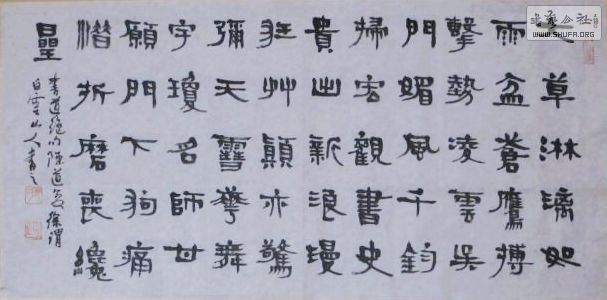 草淋漓如
雨盆蒼鷹搏
擊勢凌雲吳
門媚風千鈞
掃宏觀書史
貴出新浪漫
狂艸顛亦驚
彌天雪華舞
宇瓊名師甘
願門下狗痛
惜折磨喪纔
曌
書道絕句 徐渭
白雲山人書之
书法公社
WWW.SHUFA.ORG